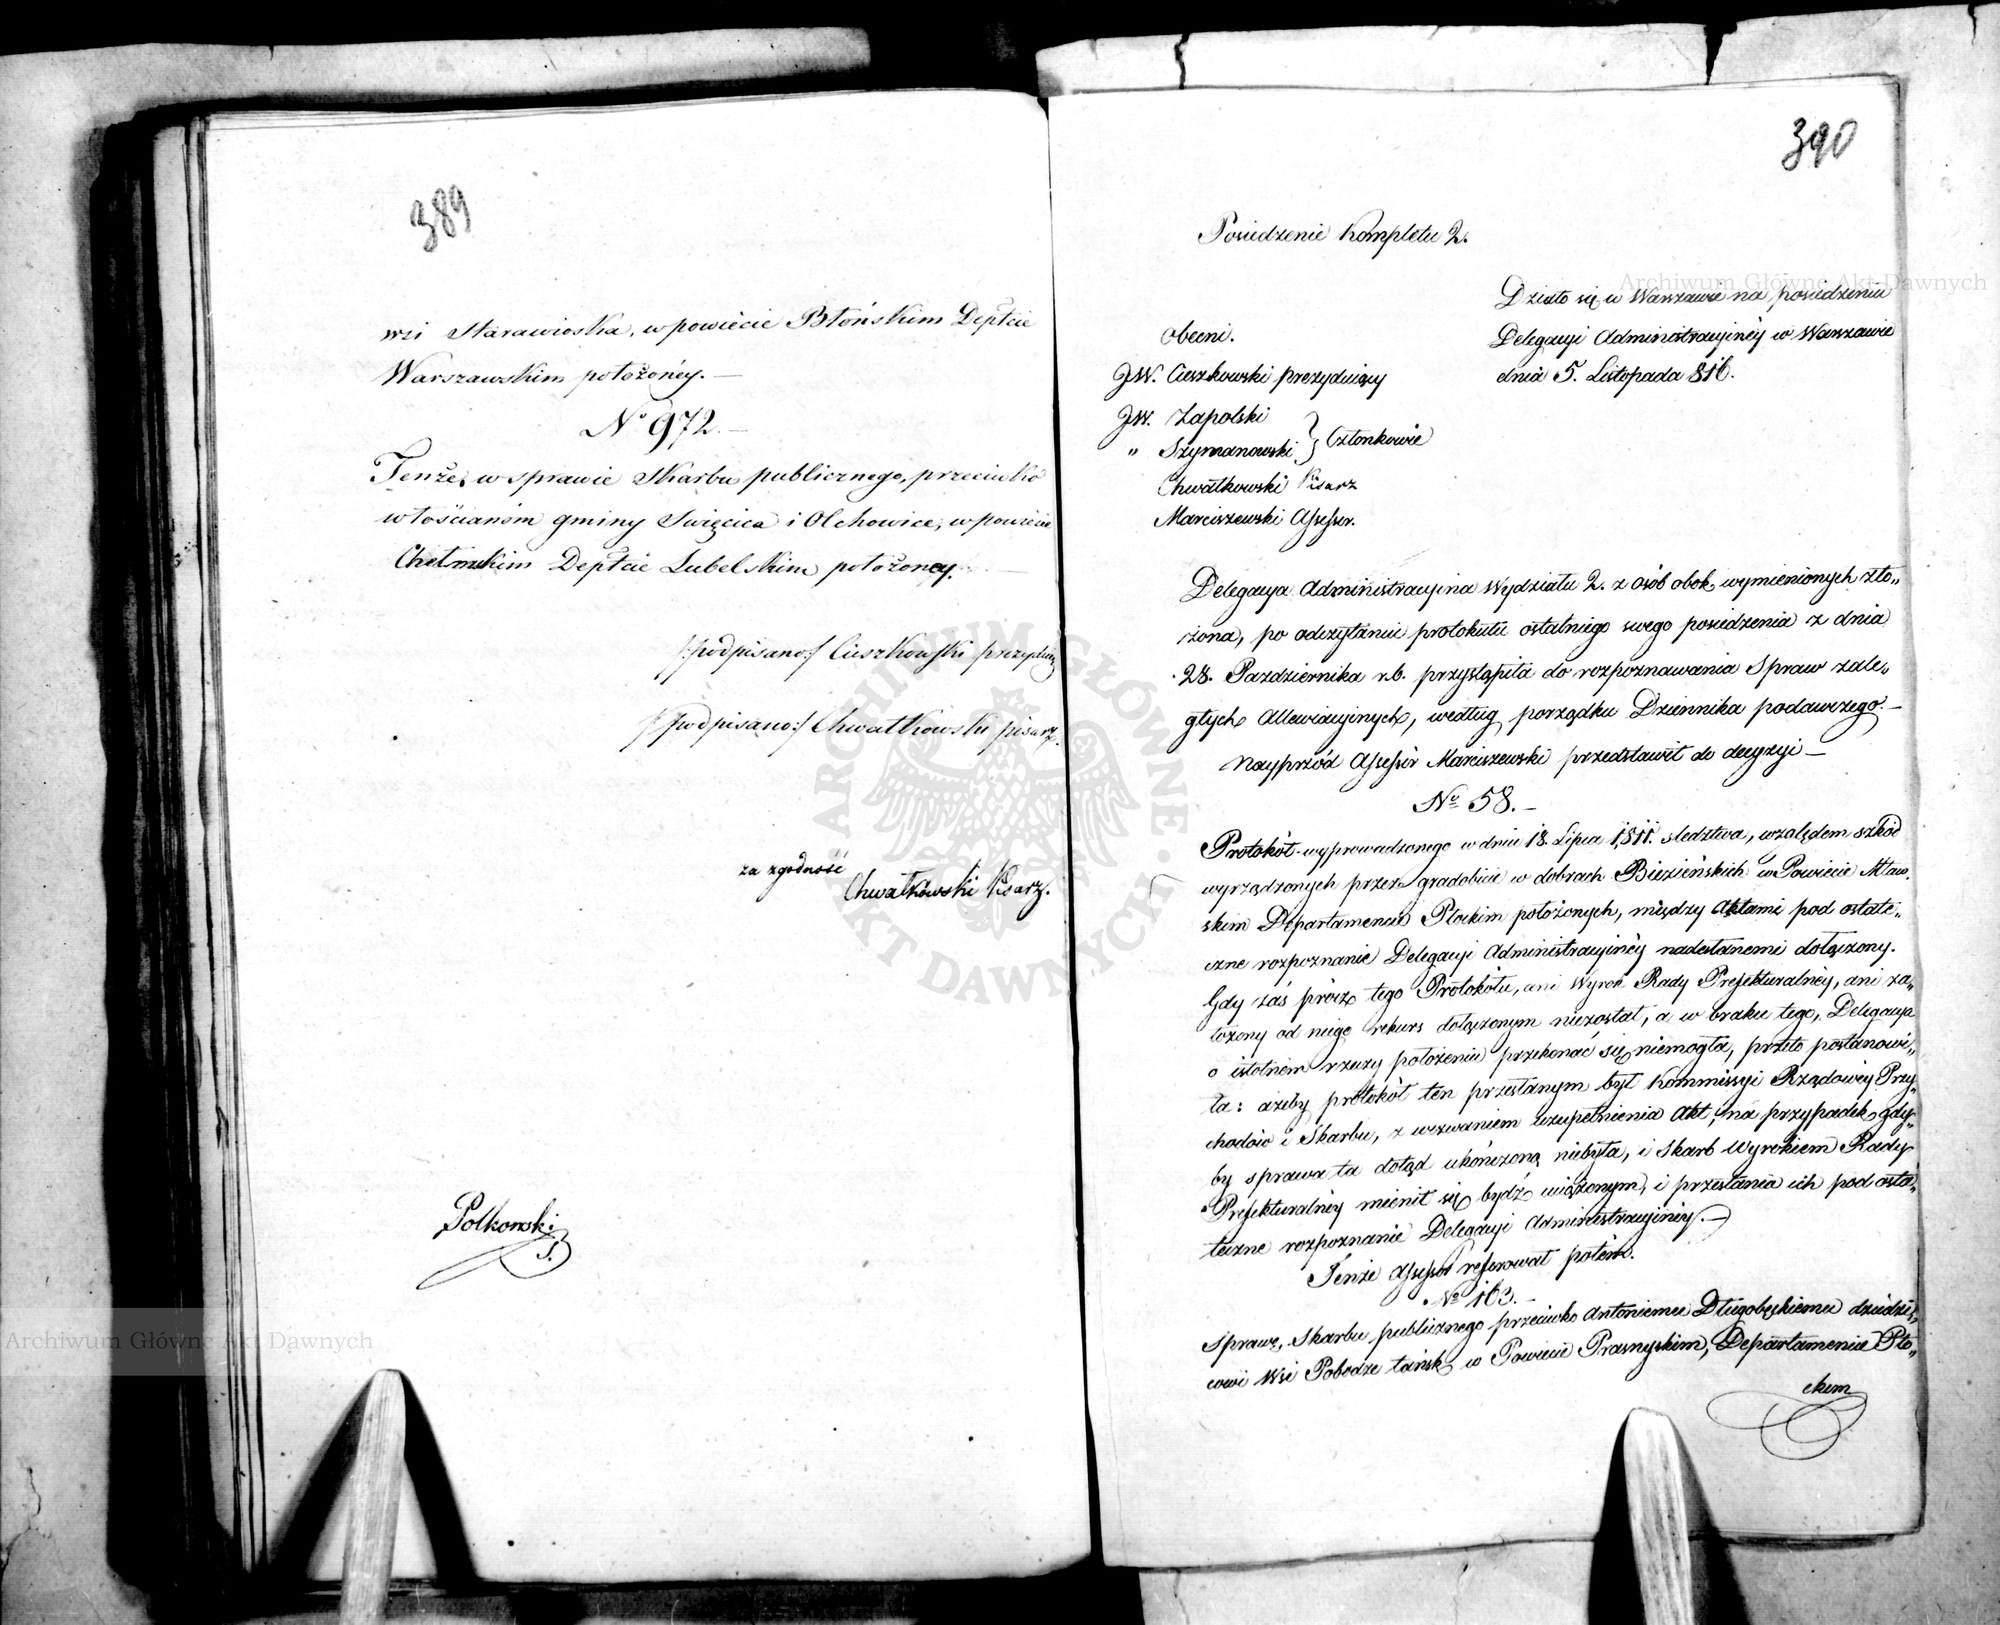 389
wsi Starawioska, w powiecie Błońskim Deptcie
Warszawskim położoney. —
No 972. —
Tenże, w sprawie Skarbu publicznego, przeciwko
włościanóm gminy Swięcica i Olchowiec, w powiecie
Chełmskim Deptcie Lubelskim położoney.
/:podpisano:/ Cieszkowski prezyduiący
/:podpisano:/ Chwatkowski pisarz.
za zgodność
Chwatkowski Pisarz.
Polkowski
S.
390
Posiedzenie Kompletu 2.
Działo się w Warszawie na posiedzeniu
Delegacyi Administracyinéy w Warszawie
dnia 5. Listopada 816.
Obecni.
JW. Cieszkowski prezyduiący
JW. Zapolski
" Szymanowski } Członkowie
Chwatkowski Pisarz
Marciszewski Assessor.
Delegacya Administracyina Wydziału 2. z osób obok wymienionych zło„
żona, po odczytaniu protokułu ostatniego swego posiedzenia z dnia
28. Pazdziernika r.b. przystąpiła do rozpoznawania Spraw zale„
głych Allewiacyinych, według porządku Dziennika podawczego. —
Nayprzód Assessor Marciszewski przedstawił do decyzyi —
No 58. —
Protokół wyprowadzonego w dniu 18. Lipca 1811. sledztwa, względem szkód
wyrządzonych przez gradobicie w dobrach Bieżińskich w Powiecie Mław„
skim Departamencie Płockim położonych, między Aktami pod ostate„
czne rozpoznanie Delegacyi Administracyinéy nadesłanemi dołączony.
Gdy zaś prócz tego Protokółu, ani Wyrok Rady Prefekturalnéy, ani za„
łożony od niego rekurs dołączonym niezostał, a w braku tego, Delegacya
o istotném rzeczy położeniu przekonać się niemogła, przeto postanowi„
ła: ażeby protokół ten przesłanym był Kommissyi Rządowéy Przy„
chodów i Skarbu, z wezwaniem uzupełnienia Akt, na przypadek gdy„
by sprawa ta dotąd ukończoną niebyła, i Skarb Wyrokiem Rady
Prefekturalnéy mienił się bydź uciążonym, i przesłania ich pod osta„
teczne rozpoznanie Delegacyi Administracyinéy. —
Tenże Assessor referował potém.
No 163. —
Sprawę, Skarbu publicznego przeciwko Antoniemu Długołęckiemu dziedzi„
cowi Wsi Pobodze łańsk w Powiecie Prasnyskim, Departamencie Pło„
ckim
Archiwum Główne Akt Dawnych
Archiwum Główne Akt Dawnych
ARCHIWUM GŁÓWNE AKT DAWNYCH